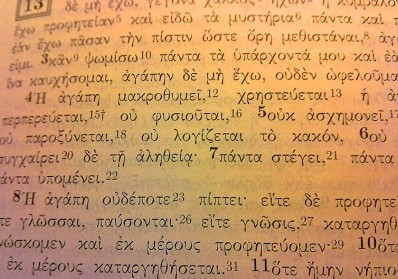 13 δὲ μὴ ἔχω, γέγονα χαλκὸς
ἔχω προφητείαν⁵ καὶ εἰδῶ τὰ μυστήρια⁶ πάντα καὶ
ἐὰν ἔχω πᾶσαν τὴν πίστιν ὥστε ὄρη μεθιστάναι,⁸
εἰμι. 3κἂν⁹ ψωμίσω¹⁰ πάντα τὰ ὑπάρχοντά μου καὶ
ἵνα καυχήσωμαι, ἀγάπην δὲ μὴ ἔχω, οὐδὲν
4Ἡ ἀγάπη μακροθυμεῖ,¹² χρηστεύεται¹³ ἡ
περπερεύεται,¹⁵† οὐ φυσιοῦται,¹⁶ 5οὐκ ἀσχημονεῖ,
οὐ παροξύνεται,¹⁸ οὐ λογίζεται τὸ κακόν, 6οὐ
συγχαίρει²⁰ δὲ τῇ ἀληθείᾳ· 7πάντα στέγει,²¹ πάντα
πάντα ὑπομένει.²²
8Ἡ ἀγάπη οὐδέποτε²³ πίπτει· εἴτε δὲ
τε γλῶσσαι, παύσονται·²⁶ εἴτε γνῶσις,²⁷
νώσκομεν καὶ ἐκ μέρους προφητεύομεν·²⁹ 10
ἐκ μέρους καταργηθήσεται.³¹ 11ὅτε ἤμην